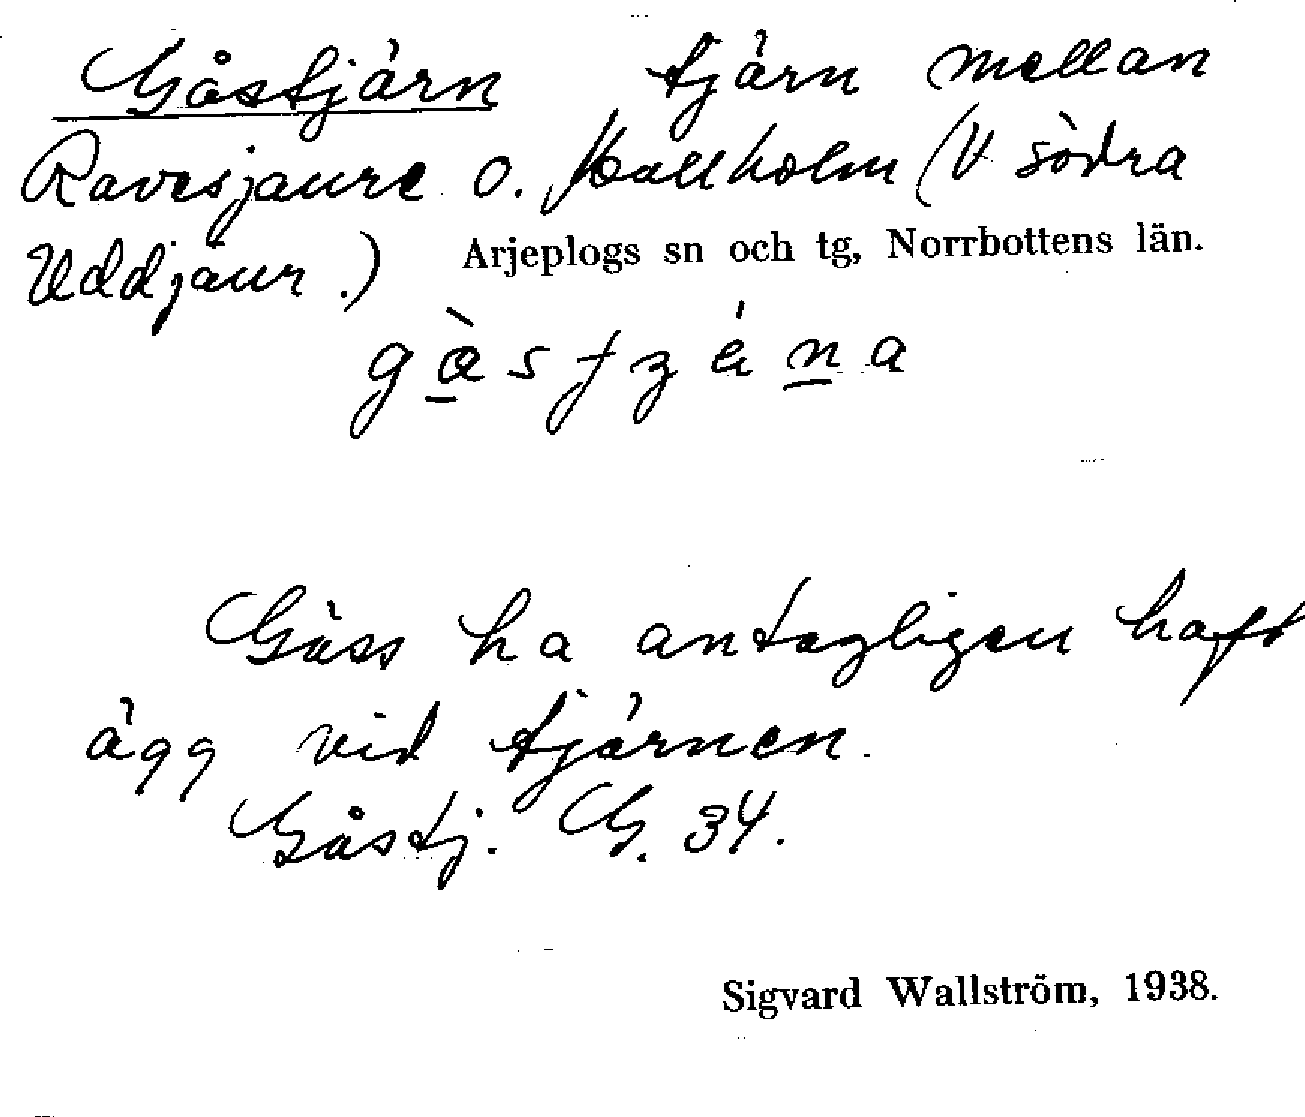 Gåstjärn tjärn mellan
Ravesjaure o. Kallholm (V södra
Uddjaur.) Arjeplogs sn och tg, Norrbottens län.
Gäss ha antagligen haft
ägg vid tjärnen.
Gåstj. G. 34.
Sigvard Wallström, 1938.